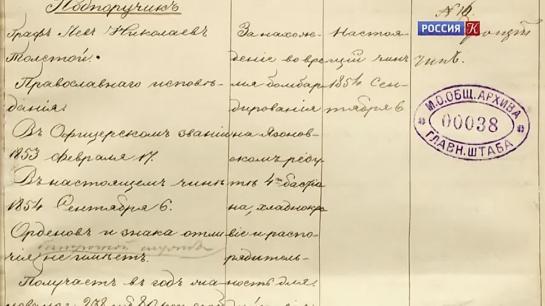 Подпоручикъ
Графъ Левъ Николаевъ
Толстой.
Православнаго исповѣ-
данія.
Въ Офицерскомъ званіи
1853 февраля 17.
Въ настоящемъ чинѣ
1854 Сентября 6.
Орденовъ и знака отли-
чія не имѣетъ.
Получаетъ въ годъ жа-
За нахож-
деніе во время
бомбар-
дированія
на Язонов-
скомъ реду-
тѣ 4го бастіо-
на, хладнокро-
віе и распо-
рядитель-
ность для
Настоя-
щій чинъ
1854 Сен-
тября 6
чинъ.
РОССИЯ К
М.О. ОБЩ. АРХИВА
00038
ГЛАВН. ШТАБА